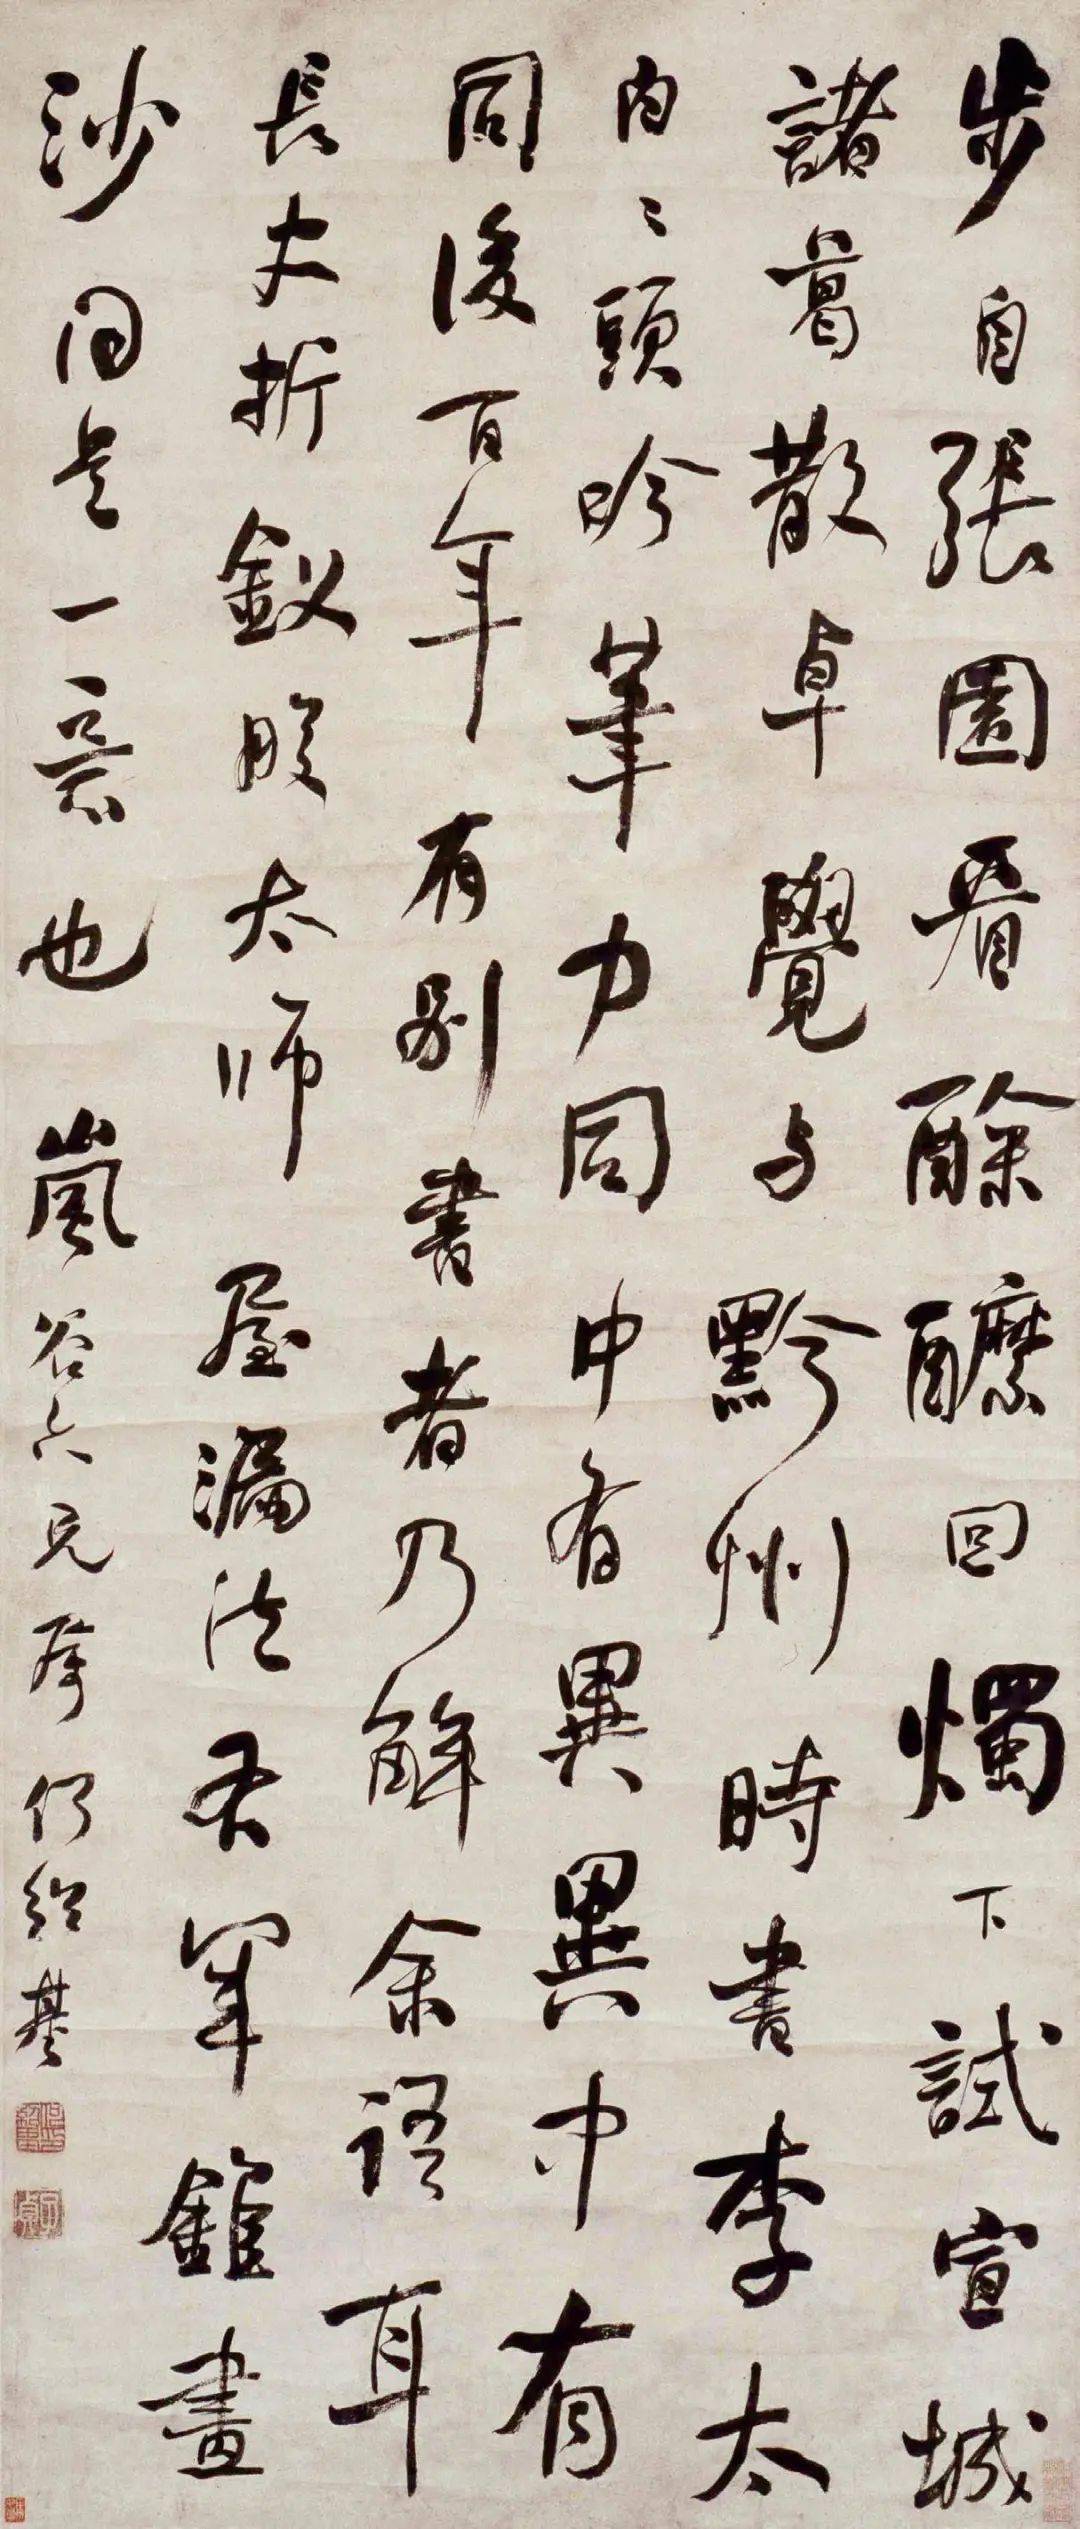 步自張園看酴醾回燭下試宣城
諸葛散卓覺与黔州時書李太
白白頭吟筆力同中有異異中有
同後百年有別書者乃解余語耳
長史折釵股太師屋漏法右軍錐畫
沙同是一意也 嵐谷六兄屬 何紹基